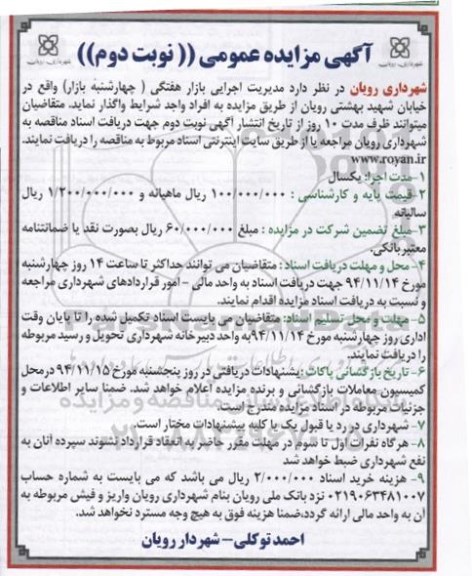 آگهی مزایده عمومی (( نوبت دوم))
شهرداری رویان در نظر دارد مدیریت اجرایی بازار هفتگی ( چهارشنبه بازار) واقع در
خیابان شهید بهشتی رویان از طریق مزایده به افراد واجد شرایط واگذار نماید. متقاضیان
میتوانند ظرف مدت ۱۰ روز از تاریخ انتشار آگهی نوبت دوم جهت دریافت اسناد مناقصه به
شهرداری رویان مراجعه یا از طریق سایت اینترنتی اسناد مربوط به مناقصه را دریافت نمایند.
www.royan.ir
۱-مدت اجرا: یکسال
۲-قیمت پایه و کارشناسی : ۱۰۰/۰۰۰/۰۰۰ ریال ماهیانه و ۱/۲۰۰/۰۰۰/۰۰۰ ریال
سالیانه.
۳-مبلغ تضمین شرکت در مزایده : مبلغ ۶۰/۰۰۰/۰۰۰ ریال بصورت نقد یا ضمانتنامه
معتبر بانکی.
۴-محل و مهلت دریافت اسناد : متقاضیان می توانند حداکثر تا ساعت ۱۴ روز چهارشنبه
مورخ ۹۴/۱۱/۱۴ جهت دریافت اسناد به واحد مالی - امور قراردادهای شهرداری مراجعه
و نسبت به دریافت اسناد مزایده اقدام نمایند.
۵- مهلت و محل تسلیم اسناد: متقاضیان می بایست اسناد تکمیل شده را تا پایان وقت
اداری روز چهارشنبه مورخ ۹۴/۱۱/۱۴به واحد دبیرخانه شهرداری تحویل و رسید مربوطه
را دریافت نمایند.
۶- تاریخ بازگشائی پاکات :پیشنهادات دریافتی در روز پنجشنبه مورخ ۹۴/۱۱/۱۵ درمحل
کمیسیون معاملات بازگشائی و برنده مزایده اعلام خواهد شد. ضمنا سایر اطلاعات و
جزئیات مربوطه در اسناد مزایده مندرج است.
۷- شهرداری در رد یا قبول یک یا کلیه پیشنهادات مختار است.
۸- هرگاه نفرات اول تا سوم در مهلت مقرر حاضر به انعقاد قرارداد نشوند سپرده آنان به
نفع شهرداری ضبط خواهد شد
۹- هزینه خرید اسناد ۲/۰۰۰/۰۰۰ ریال می باشد که می بایست به شماره حساب
۰۲۱۹۰۶۳۴۸۱۰۰۷ نزد بانک ملی رویان بنام شهرداری رویان واریز و فیش مربوطه به
آن به واحد مالی ارائه گردد،ضمنا هزینه فوق به هیچ وجه مسترد نخواهد شد.
احمد توکلی - شهردار رویان